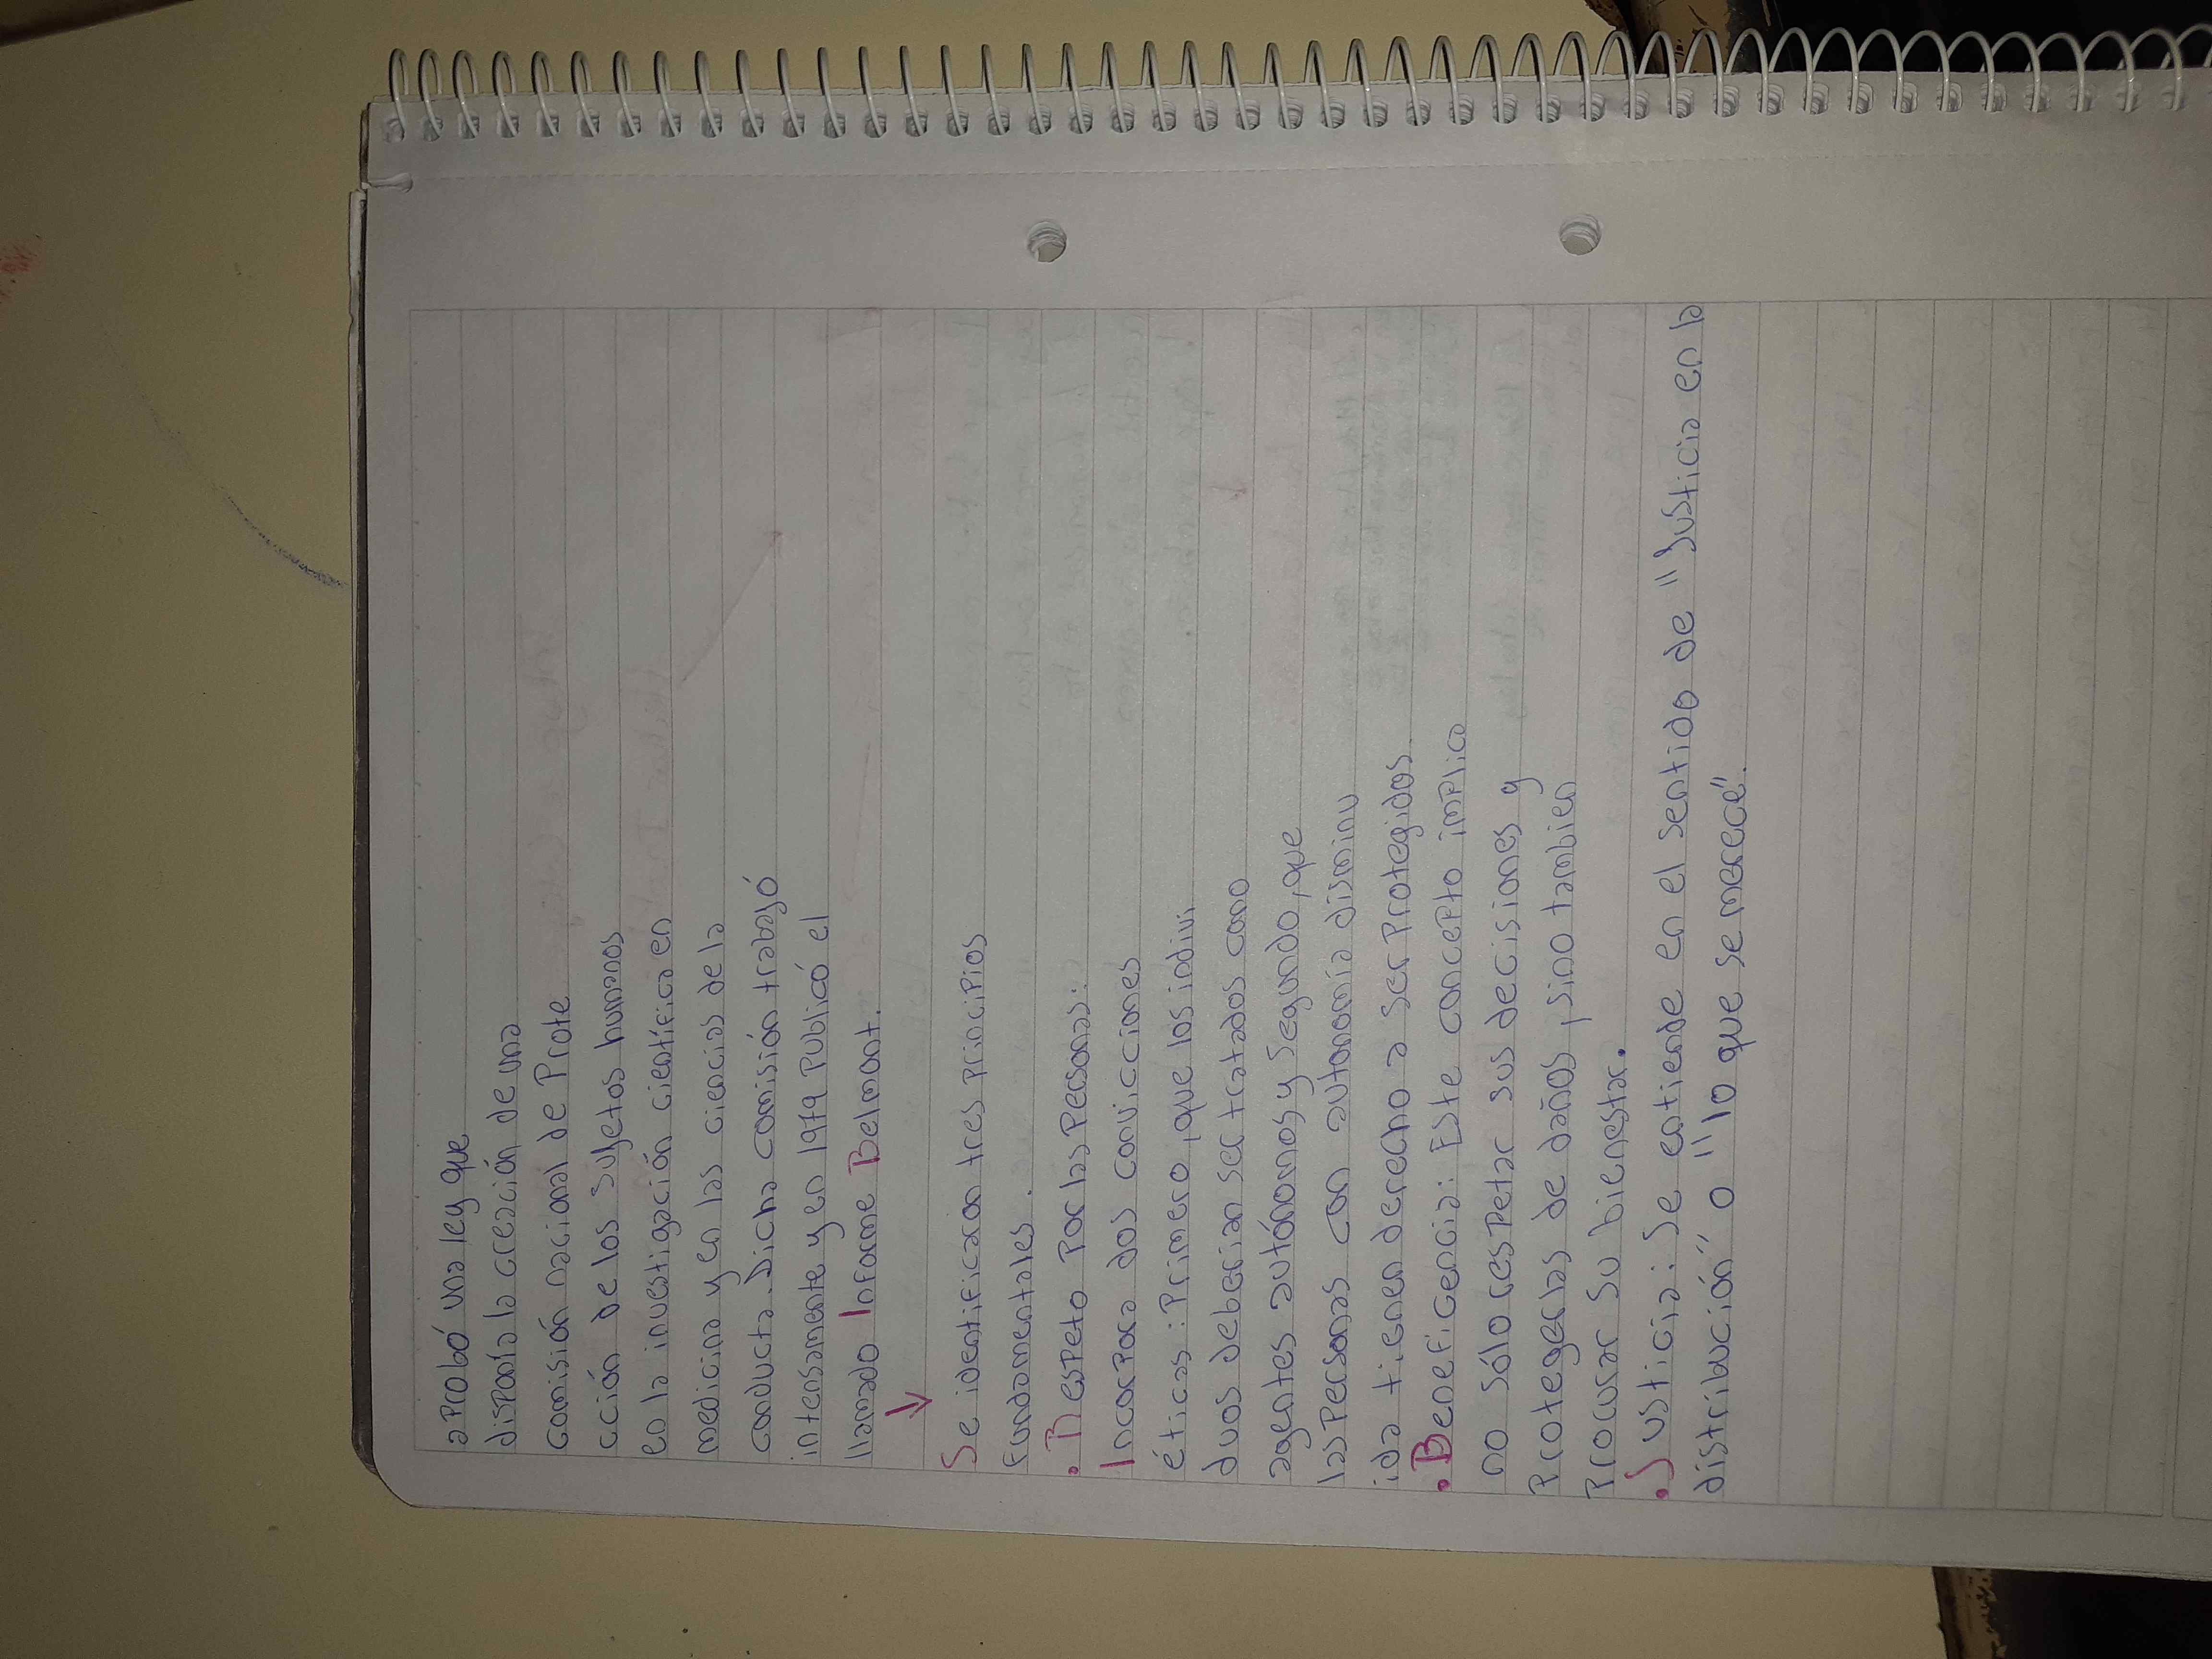 aprobó una ley que
disponía la creación de una
comisión nacional de Prote
cción de los sujetos humanos
en la investigación científica en
medicina y en las ciencias de la
conducta. Dicha comisión trabajó
intensamente y en 1979 publicó el
llamado Informe Belmont.
↓
Se identificaron tres principios
fundamentales.
• Respeto por las personas:
Incorpora dos convicciones
éticas: Primero, que los indivi
duos deberían ser tratados como
agentes autónomos y segundo, que
las personas con autonomía disminu
ida tienen derecho a ser protegidos.
• Beneficencia: Este concepto implica
no sólo respetar sus decisiones y
protegerlas de daños, sino tambien
procurar su bienestar.
• Justicia: Se entiende en el sentido de "Justicia en la
distribución" o "lo que se merece".